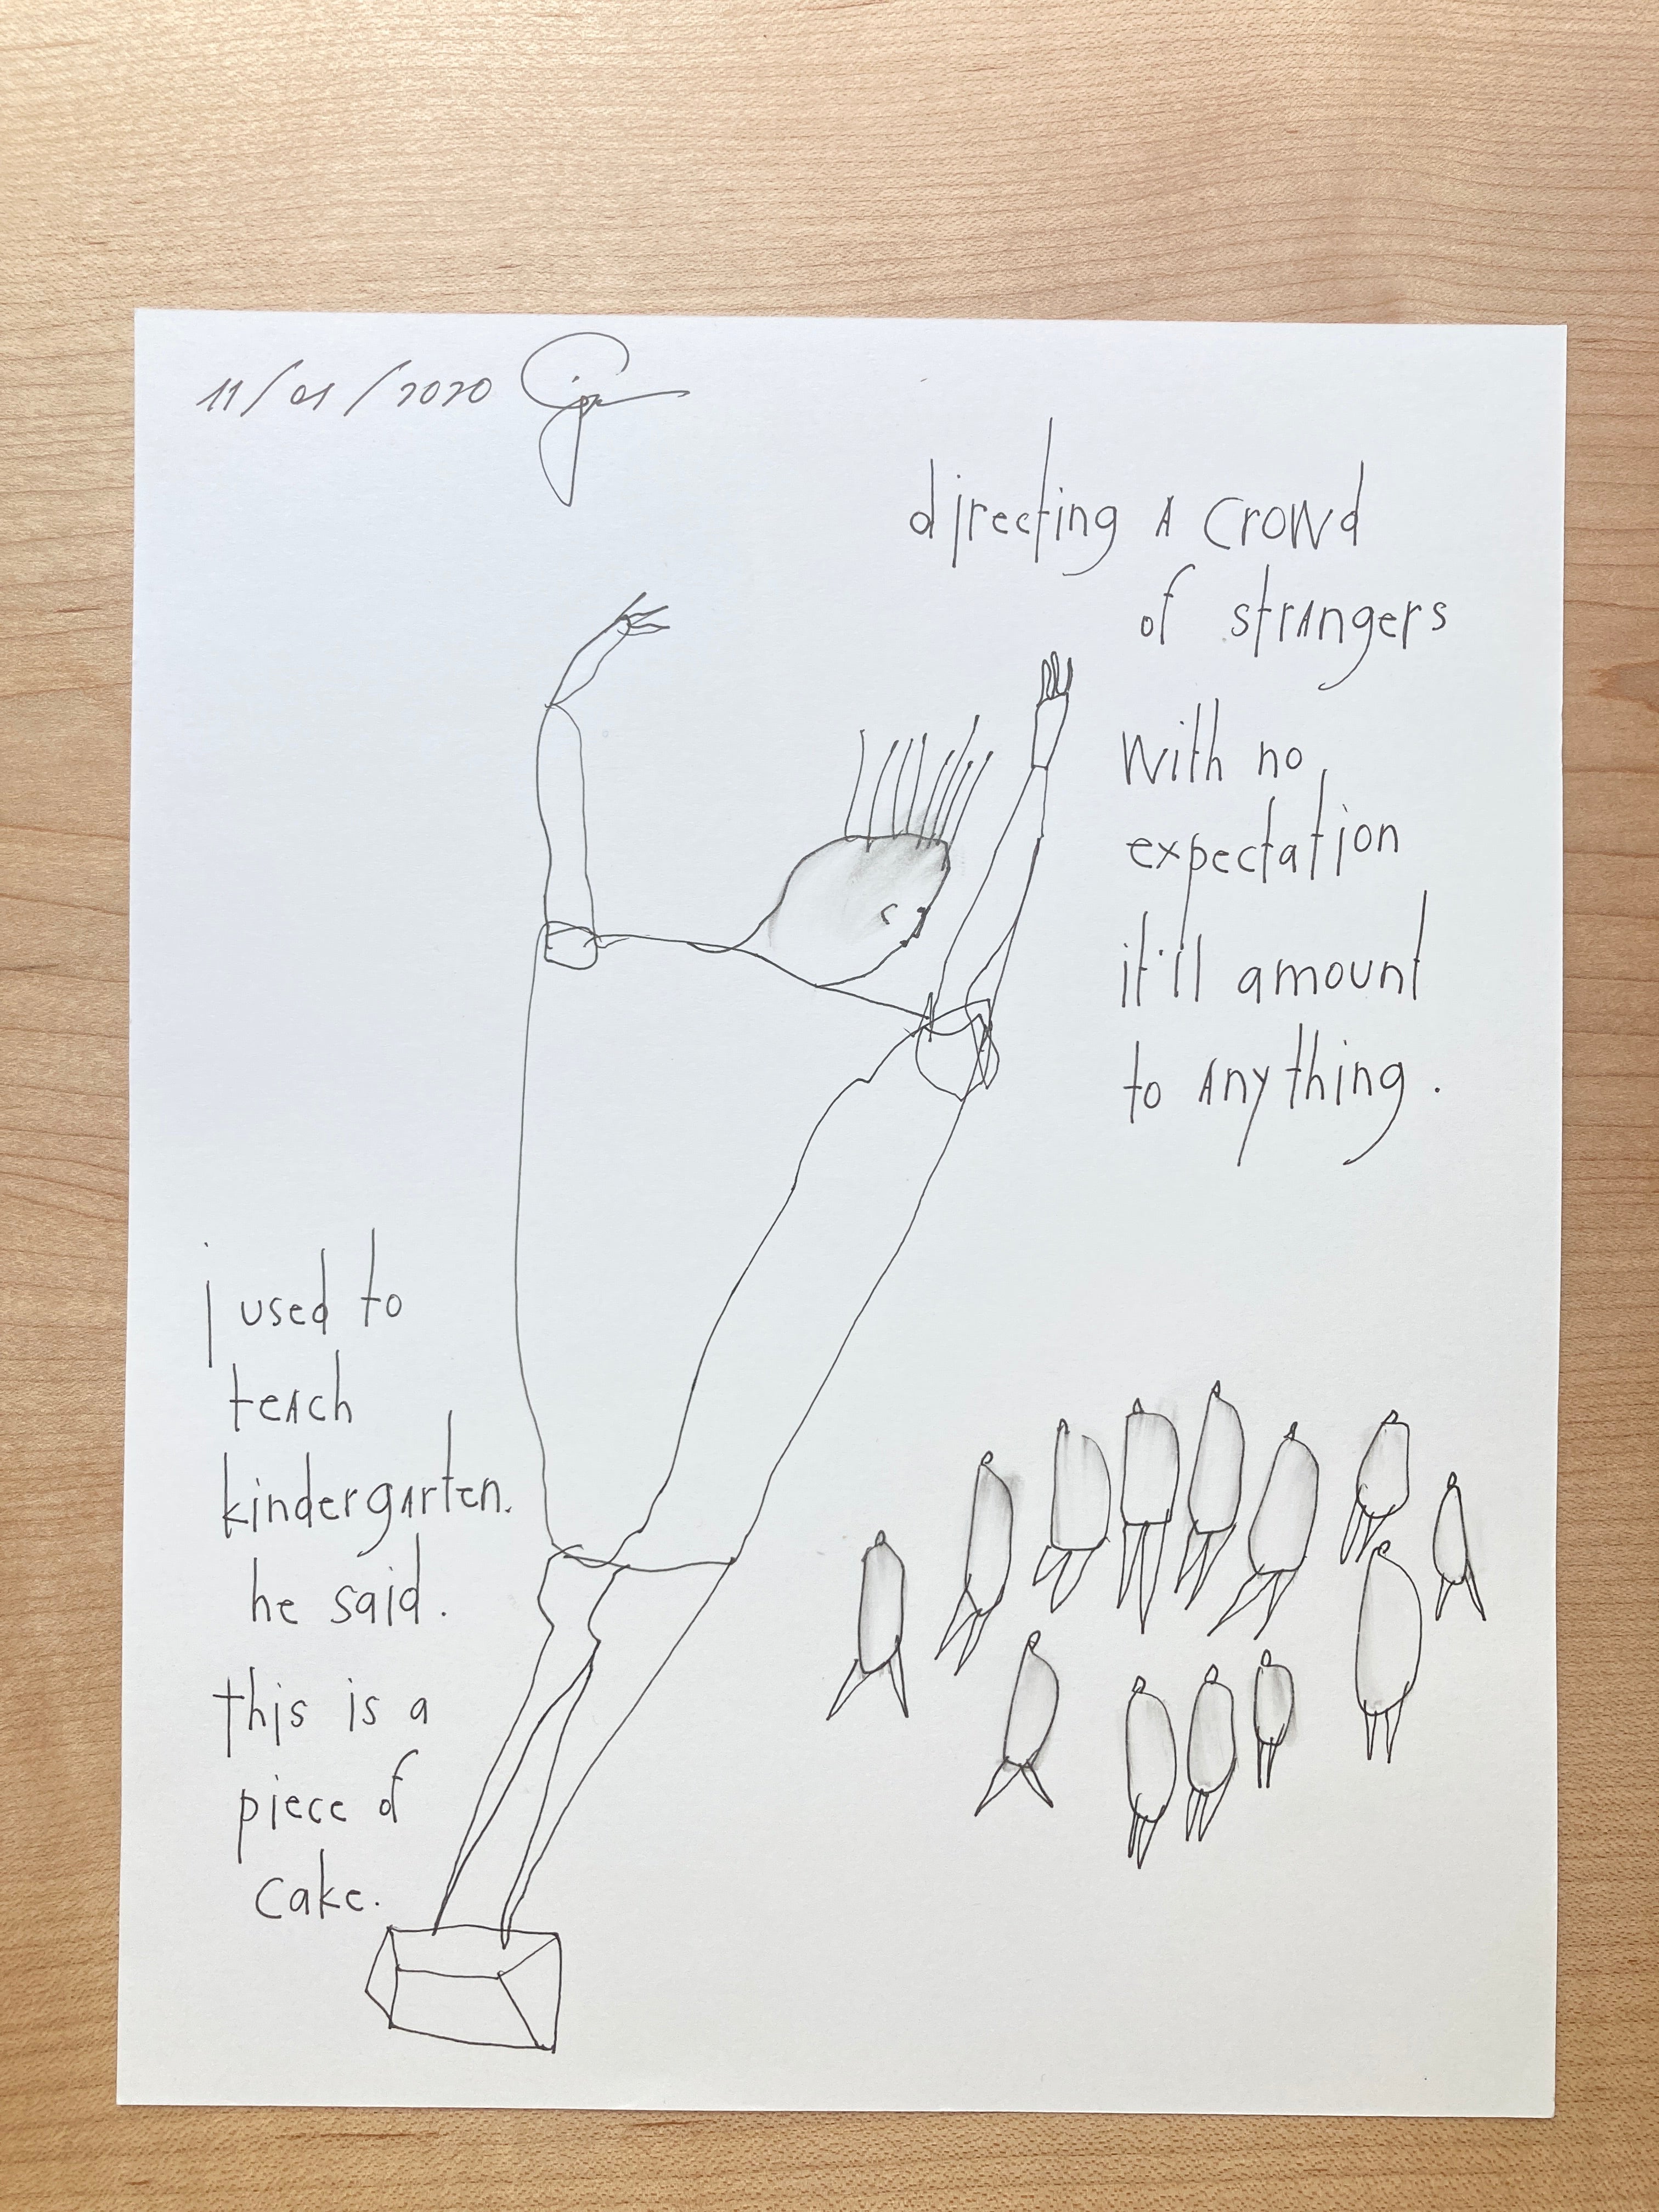 11/01/2020
directing A crowd
of strAngers
with no
expectation
it'll amount
to Anything.
i used to
teAch
kindergArten.
he said.
this is a
piece of
cake.